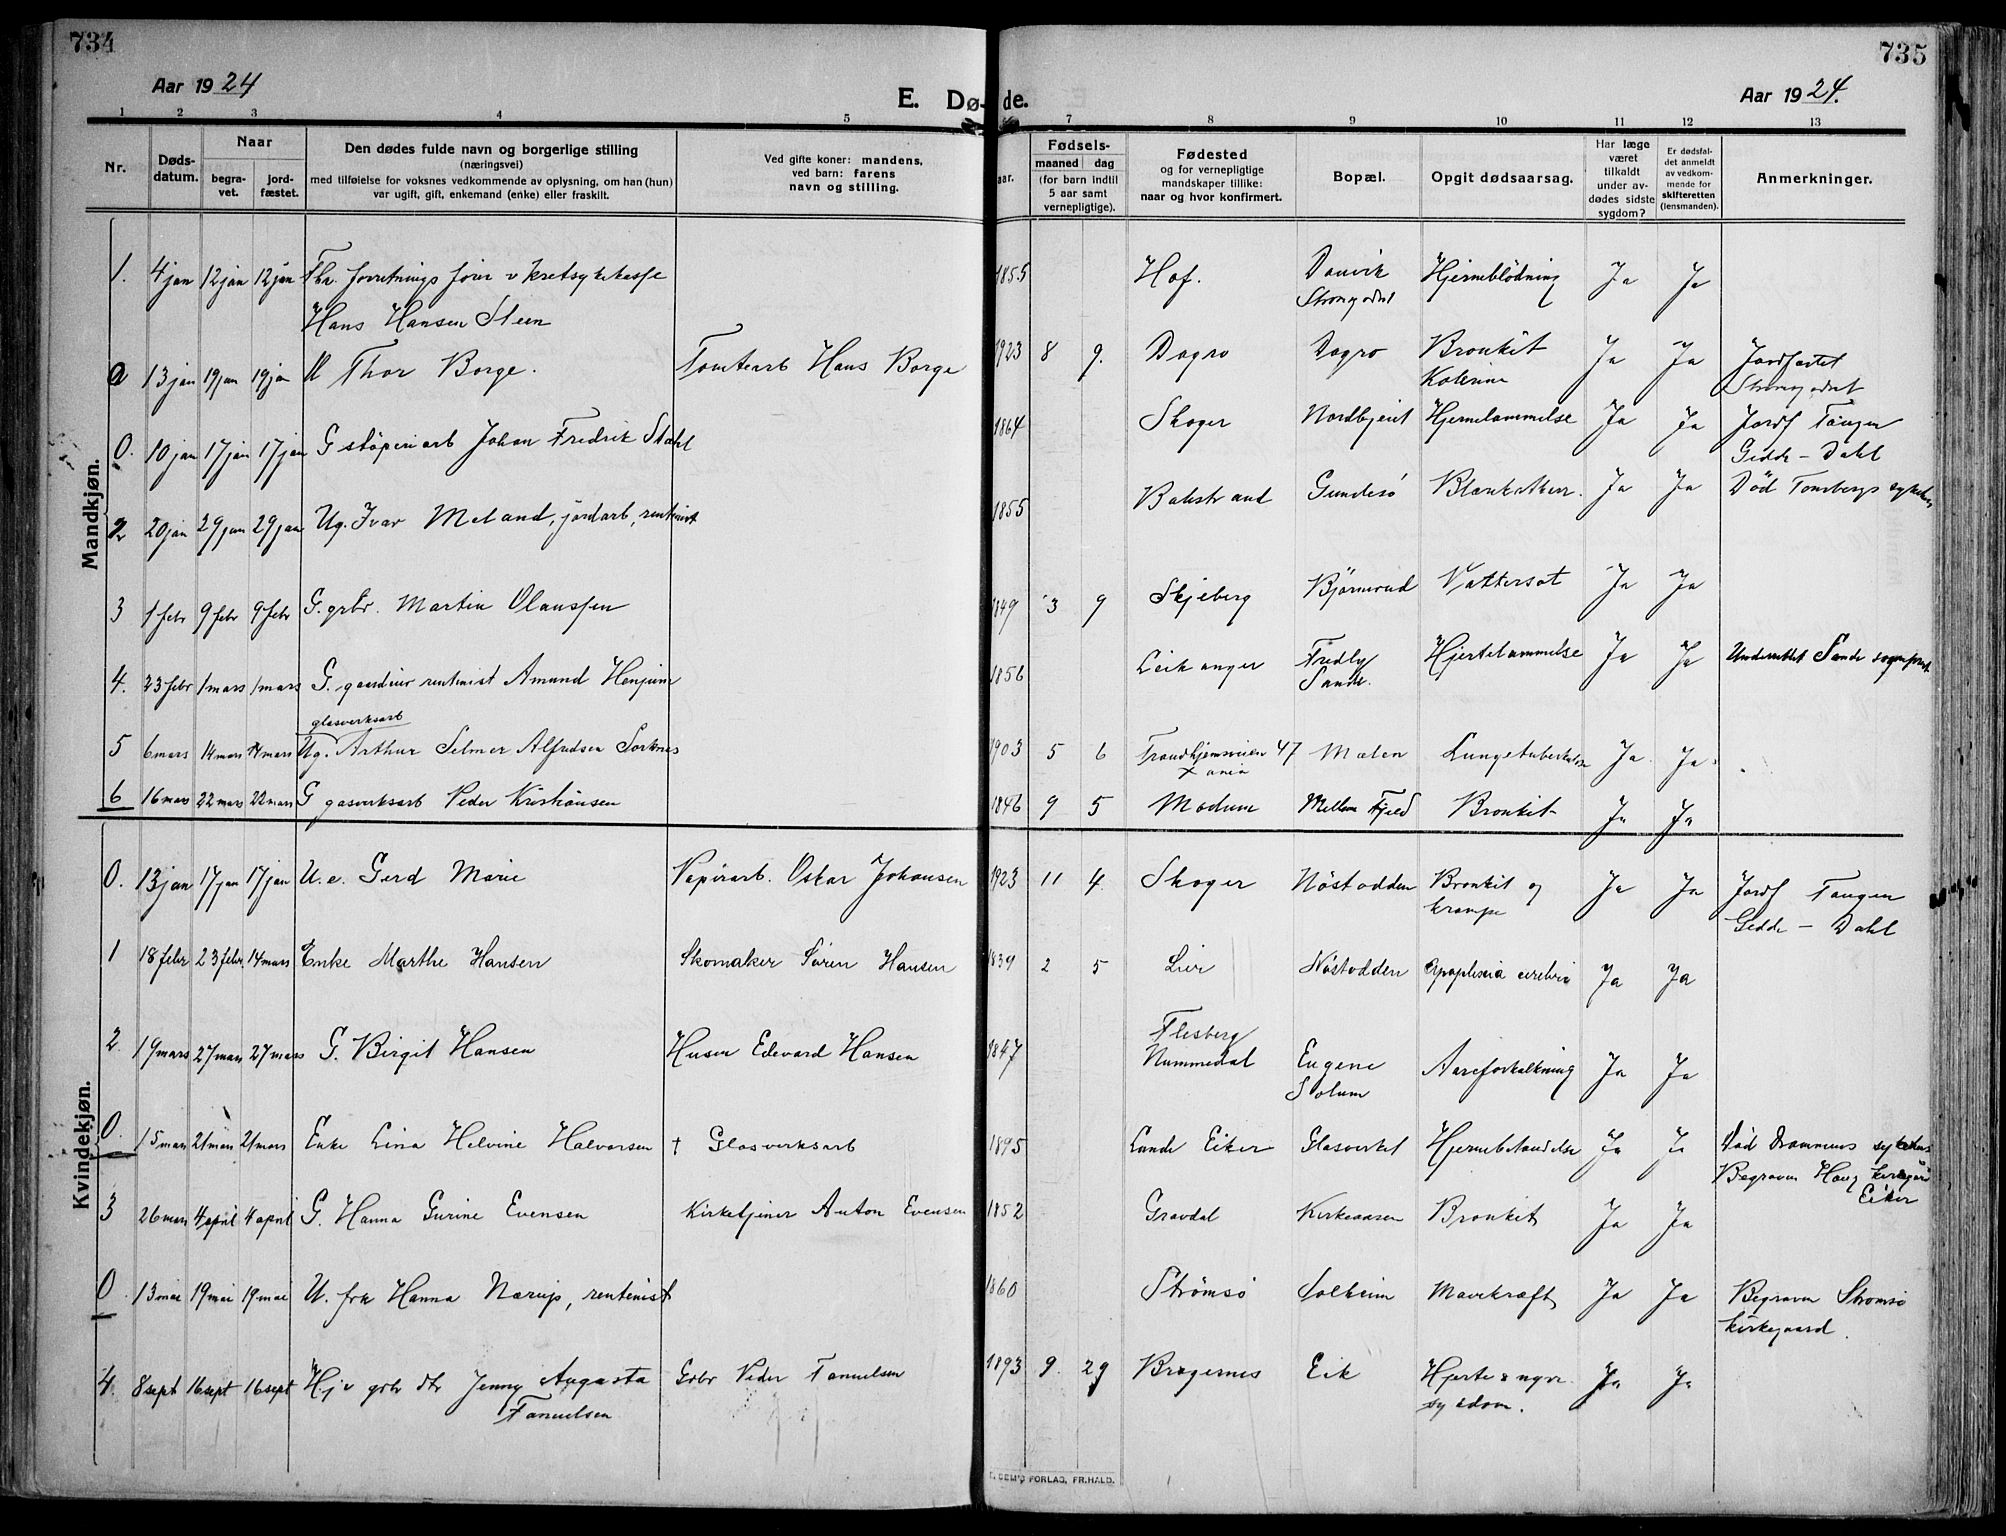 734
735
Aar 1924
E. Dø- de.
Aar 1924.
1 2 3 4 5 7 8 9 10 11 12 13
Nr.
Døds-
datum.
Naar
begra-
vet.
jord-
fæstet.
Den dødes fulde navn og borgerlige stilling
(næringsvei)
med tilføielse for voksnes vedkommende av oplysning, om han (hun)
var ugift, gift, enkemand (enke) eller fraskilt.
Ved gifte koner: mandens,
ved barn: farens
navn og stilling.
aar.
Fødsels-
maaned dag
(for barn indtil
5 aar samt
vernepligtige).
Fødested
og for vernepligtige
mandskaper tillike:
naar og hvor konfirmert.
Bopæl.
Opgit dødsaarsag.
Har læge
været
tilkaldt
under av-
dødes sidste
sygdom?
Er dødsfal-
det anmeldt
av vedkom-
mende for
skifteretten
(lensmanden).
Anmerkninger.
Mandkjøn.
1. 4 jan 12 jan 12 jan Fhv. forretningsfører v kretsykekasse 1855 Hof. Danvik Hjerneblödning Ja Ja
Hans Hansen Steen
Strømgodset
0 13 jan 19 jan 19 jan U Thor Borge. Tomtearb Hans Borge 1923 8 9. Dagro Dagro Bronkit Ja Ja Jordfæstet
Kolerine
Strømgodset
0. 10 jan 17 jan 17 jan G støperiarb Johan Fredrik Stahl 1864 Skoger Nordbyeit Hjernelammelse Ja Ja Jordf Tangen
Gedde - Dahl
2 20 jan 29 jan 29 jan Ug. Ivar Meland, jordarb, rentenist 1855 Balestrand Gundesö Blærekatherr. Ja Ja Död Tønsbergs sykehus
3 1 febr 9 febr 9 febr G. grbr. Martin Olaussen 1849 3 9 Skjeberg Björnerud Vattersot Ja Ja
4. 23 febr 1 mars 1 mars G. gaardeier rentenist Amund Henjum 1856 Leikanger Fredly Hjertelammelse Ja Ja Underrettet Sande sogneprest
Sande.
glasverksarb
5 6 mars 14 mars 14 mars Ug. Arthur Selmer Alfredsen Sorknes 1903 5 6 Trondhjemsveien 47 Mælen Lungetuberkulose Ja Ja
X ania
6 16 mars 22 mars 22 mars G gasverksarb Peder Kristiansen 1846 9 5 Modum Mellem Fjeld Bronkit Ja Ja
Kvindekjøn.
0. 13 jan 17 jan 17 jan U. e. Gerd Marie Papirarb. Oskar Johansen 1923 11 4. Skoger Nöstodden Bronkit og Ja Ja Jordf Tangen
krampe
Gedde - Dahl
1 18 febr 23 febr. 14 mars Enke Marthe Hansen Skomaker Sören Hansen 1839 2 5 Lier Nöstodden Apoplexia cerebri Ja Ja
2. 19 mars 27 mars 27 mars G. Birgit Hansen Huseier Edevard Hansen 1847 Flesberg
Nummedal Eugene Aareforkalkning Ja Ja
Solum
0. 15 mars 21 mars 21 mars Enke Lina Helvine Halvorsen † Glasverksarb 1895 Lunde Eiker Glasverket Hjernebetændelse Ja Ja Död Drammens sykehus
Begraven Haug kirkegård
Eiker
3 26 mars 4 april 4 april G. Hanna Gurine Evensen Kirketjener Anton Evensen 1852 Gravdal Kirkeaasen Bronkit Ja Ja
0 13 mai 19 mai 19 mai U. frk Hanna Nærup, rentenist 1860 Strømsø Solheim Mavekræft Ja Ja Begraven Strømsø
kirkegaard.
4. 8 sept 16 sept 16 sept Hjv grbr dtr Jenny Augusta Grbr Peder Fanuelsen 1893 9. 29 Bragernes Eik Hjerte & nyre Ja Ja
Fanuelsen
sygdom.
SEM'S FORLAG, FR.HALD.